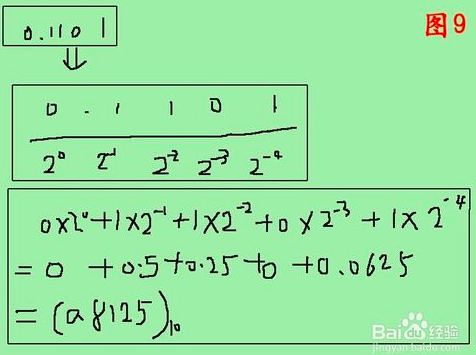 图9
0.1101
⇓
0 . 1 1 0 1
2⁰ 2⁻¹ 2⁻² 2⁻³ 2⁻⁴
0×2⁰+1×2⁻¹+1×2⁻²+0×2⁻³+1×2⁻⁴
=0+0.5+0.25+0+0.0625
=(0.8125)₁₀
Baidu经验
jingyan.baidu.com